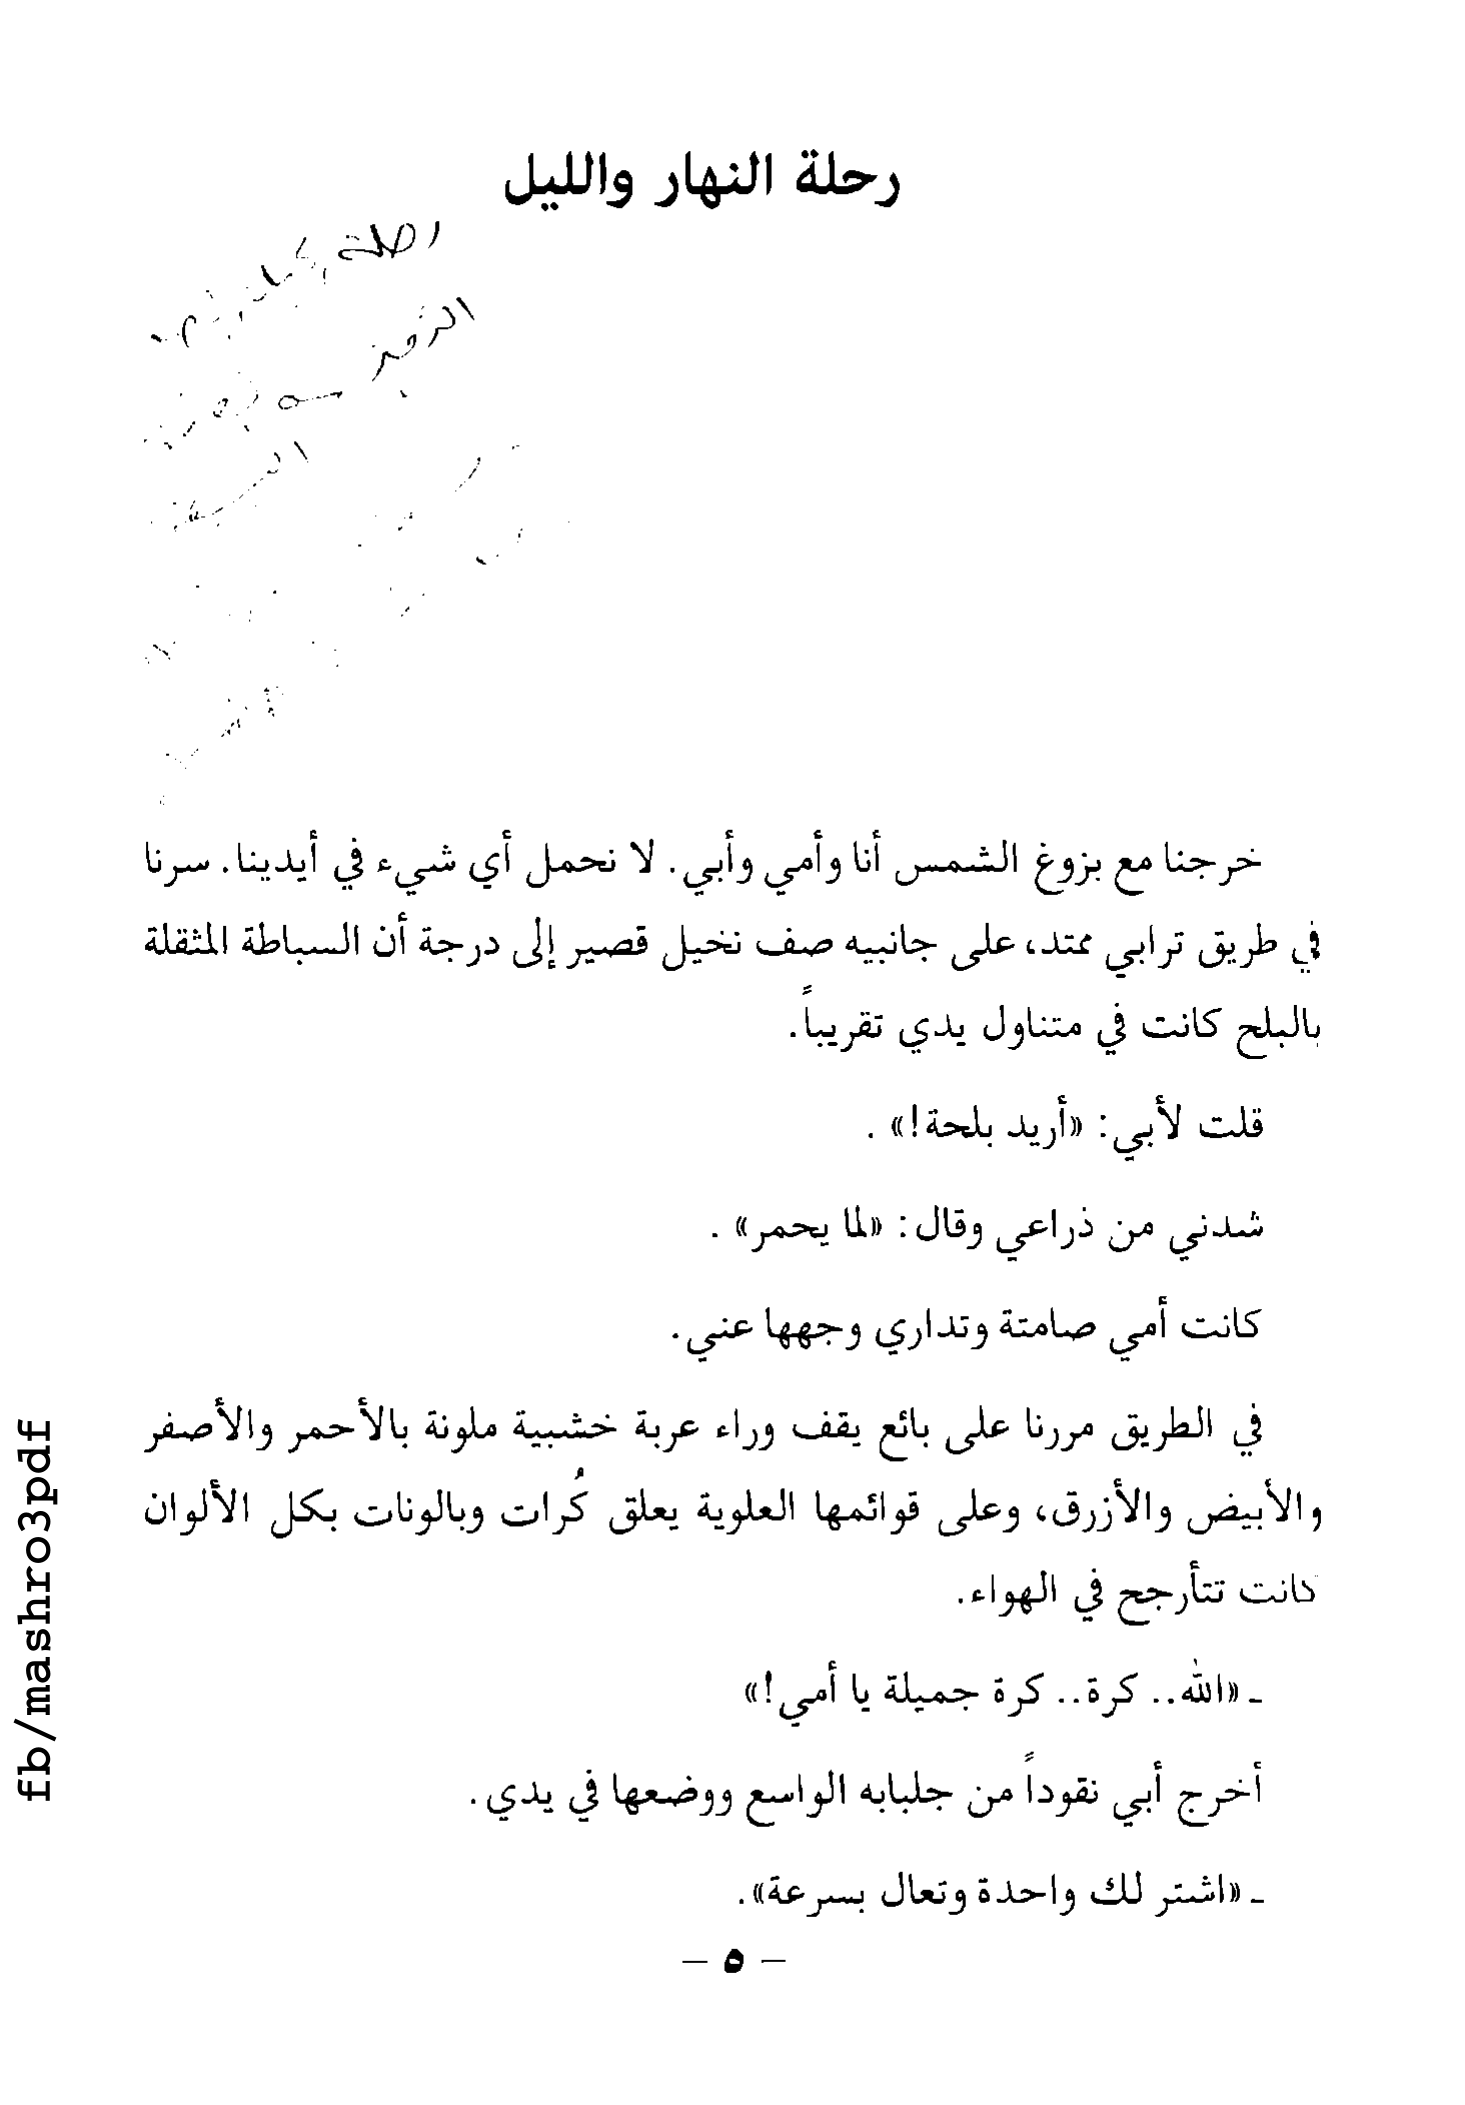 رحلة النهار والليل
رحلة
خرجنا مع بزوغ الشمس أنا وأمي وأبي. لا نحمل أي شيء في أيدينا. سرنا
في طريق ترابي ممتد، على جانبيه صف نخيل قصير إلى درجة أن السباطة المثقلة
بالبلح كانت في متناول يدي تقريباً.
قلت لأبي: «أريد بلحة!» .
شدني من ذراعي وقال: «لما يحمر» .
كانت أمي صامتة وتداري وجهها عني.
في الطريق مررنا على بائع يقف وراء عربة خشبية ملونة بالأحمر والأصفر
والأبيض والأزرق، وعلى قوائمها العلوية يعلق كُرات وبالونات بكل الألوان
كانت تتأرجح في الهواء.
ـ «الله.. كرة.. كرة جميلة يا أمي!»
أخرج أبي نقوداً من جلبابه الواسع ووضعها في يدي.
ـ «اشتر لك واحدة وتعال بسرعة».
– ٥ –
fb/mashro3pdf